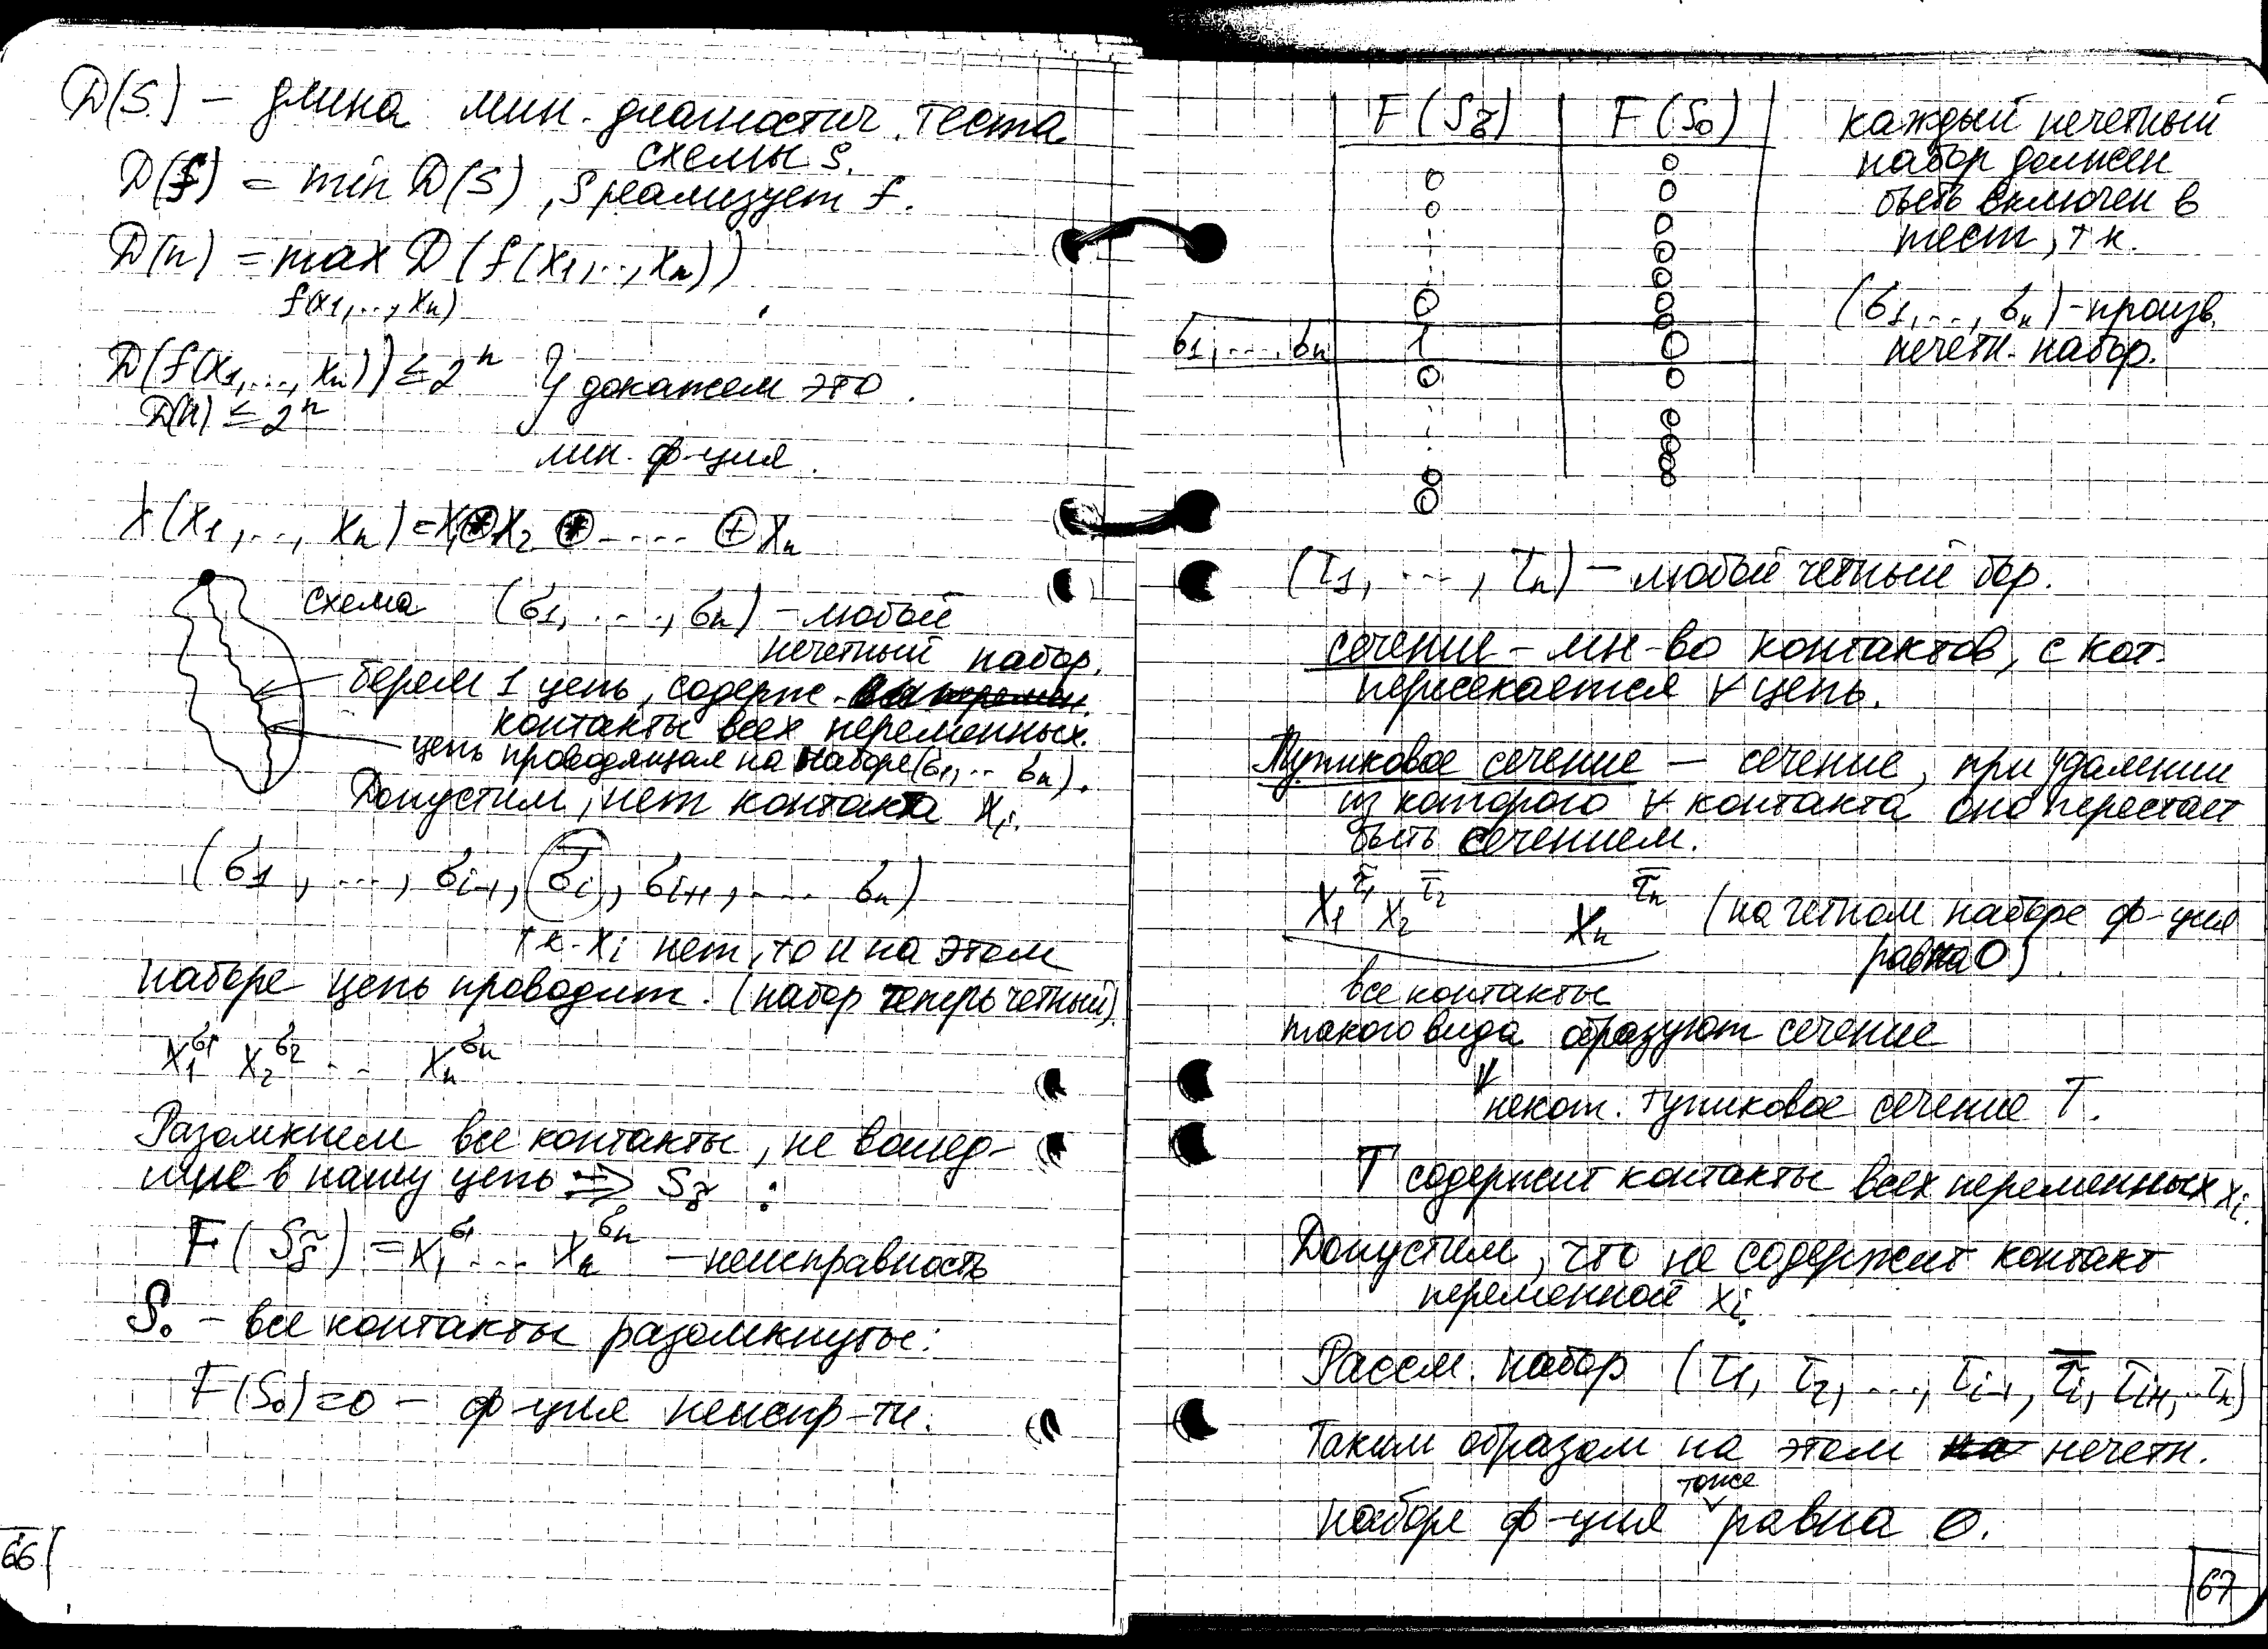 D(S) – длина мин. диагностич. теста
схемы S.
D(f) = min D(S), S реализует f.
D(n) = max D(f(x₁,..,xₙ))
f(x₁,..,xₙ)
D(f(x₁,...,xₙ)) ≤ 2ⁿ } докажем это.
D(n) ≤ 2ⁿ
лин. ф-ция.
λ(x₁,..,xₙ) = x₁⊕x₂⊕-....⊕xₙ
схема (σ₁,...,σₙ) – любой
нечетный набор.
берем 1 цепь, содерж.
контакты всех переменных.
цепь проводящая на наборе (σ₁,.. σₙ).
Допустим, нет контакта xᵢ.
(σ₁,...,σᵢ₋₁, σ̄ᵢ, σᵢ₊₁,.... σₙ)
т к. xᵢ нет, то и на этом
наборе цепь проводит. (набор теперь четный)
x₁^σ₁ x₂^σ₂ ... xₙ^σₙ
Разомкнем все контакты, не вошед-
шие в нашу цепь ⇒ S_σ̃ :
F(S_σ̃) = x₁^σ₁ ... xₙ^σₙ – неисправность
S₀ – все контакты разомкнуты:
F(S₀)=0 – ф-ция неиспр-ти.
66
F(S_σ̃) F(S₀)
0 0
0 0
0
0
0
0 0
0
σ₁,...,σₙ 1 0
0 0
0
0
0
0 0
0
каждый нечетный
набор должен
быть включен в
тест, т к.
(σ₁,...,σₙ) – произв.
нечетн. набор.
(τ₁, ..., τₙ) – любой четный бор.
сечение – мн-во контактов, с кот.
пересекается ∀ цепь.
Тупиковое сечение – сечение, при удалении
из которого ∀ контакта оно перестает
быть сечением.
x₁^τ̄₁ x₂^τ̄₂ xₙ^τ̄ₙ (на четном наборе ф-ция
равна 0).
все контакты
такого вида образуют сечение
⇓
некот. тупиковое сечение T.
T содержит контакты всех переменных xᵢ.
Допустим, что не содержит контакт
переменной xᵢ.
Рассм. набор (τ₁, τ₂, ..., τᵢ₋₁, τ̄ᵢ, τᵢ₊₁, .. τₙ)
Таким образом на этом нечетн.
тоже
наборе ф-ция равна 0.
67